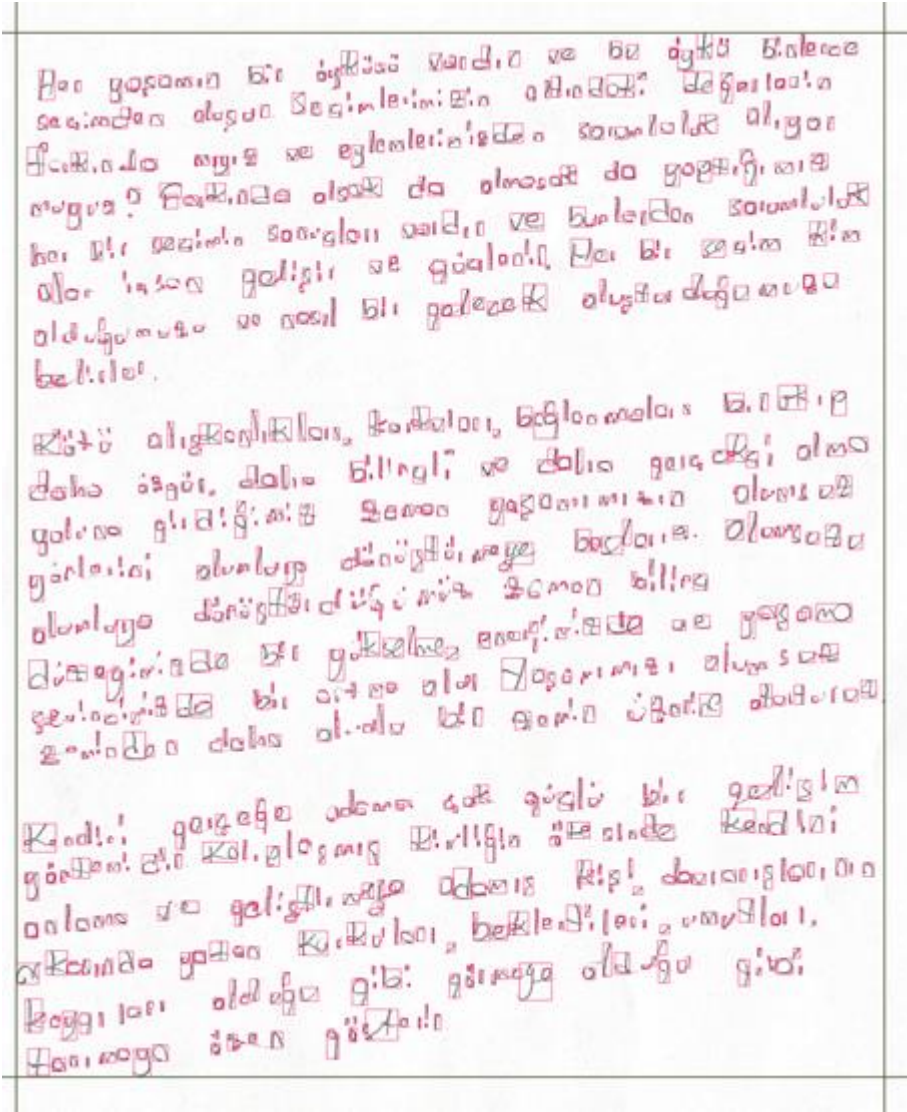 Her yaşamın bir öyküsü vardır ve bu öykü binlerce
seçimden oluşur. Seçimlerimizin altındaki değerlerin
farkında mıyız ve eylemlerimizden sorumluluk alıyor
muyuz? Farkında olsak da olmasak da yaptığımız
her bir seçimin sonuçları vardır ve bunlardan sorumluluk
alan insan gelişir ve güçlenir. Her bir seçim kim
olduğumuzu ve nasıl bir gelecek oluşturduğumuzu
belirler.
Kötü alışkanlıkları, korkuları, bağlanmaları bırakıp
daha özgür, daha bilinçli ve daha gerçekçi olma
yoluna girdiğimiz zaman yaşamımızın olumsuz
yönlerini olumluya dönüştürmeye başlarız. Olumsuzu
olumluya dönüştürdüğümüz zaman bilinç
düzeyimizde bir yükselme, enerjimizde ve yaşama
sevincimizde bir artma olur. Yaşamımızı olumsuz
zeminden daha olumlu bir zemin üzerine oturturuz
Kendini gerçeğe adama çok güçlü bir gelişim
yöntemidir. Kalıplaşmış kimliğin ötesinde kendini
anlama ve geliştirmeye adamış kişi, davranışlarının
arkasında yatan korkuları, beklentileri, umutları,
kaygıları olduğu gibi görmeye olduğu gibi
tanımaya özen gösterir